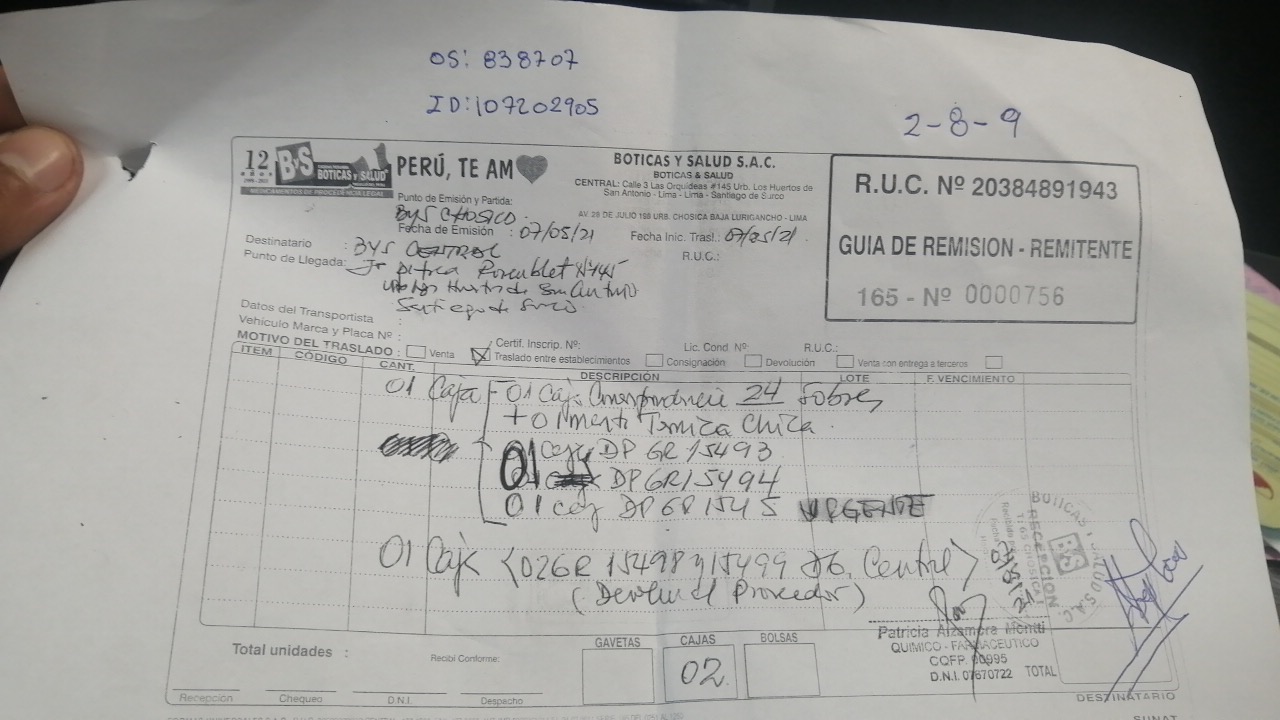 OS: 838707
ID: 107202905
2-8-9
12
ByS
BOTICAS Y SALUD
MEDICAMENTOS DE PROCEDENCIA LEGAL
PERÚ, TE AM
BOTICAS Y SALUD S.A.C.
BOTICAS & SALUD
CENTRAL: Calle 3 Las Orquideas #145 Urb. Los Huertos de
San Antonio - Lima - Lima - Santiago de Surco
AV. 28 DE JULIO 198 URB. CHOSICA BAJA LURIGANCHO - LIMA
R.U.C. Nº 20384891943
GUIA DE REMISION - REMITENTE
165 - Nº 0000756
Punto de Emisión y Partida:
BYS CHOSICO.
Fecha de Emisión : 07/05/21
Fecha Inic. Trasl.: 07/05/21
Destinatario : BYS CENTRAL
R.U.C.:
Punto de Llegada:
San Antonio
Santiago de Surco
Datos del Transportista :
Vehículo Marca y Placa Nº :
Certif. Inscrip. Nº:
Lic. Cond. Nº:
R.U.C.:
MOTIVO DEL TRASLADO : Venta Traslado entre establecimientos Consignación Devolución Venta con entrega a terceros
ITEM CÓDIGO CANT. DESCRIPCIÓN LOTE F. VENCIMIENTO
01 Caja 01 Caja Correspondencia 24 Sobres
+ 01 Chica.
01 caja DP GR 15493
01 DP GR 15494
01 caj DP GR 1545 URGENTE
01 Caja <02GR 15498 y 15499 Central>
( Proveedor)
BOTICAS Y SALUD S.A.C.
RECEPCION
ByS
Patricia Alzamora Montti
QUIMICO - FARMACEUTICO
CQFP. 00995
D.N.I. 07670722
TOTAL
Total unidades :
Recibí Conforme:
GAVETAS CAJAS BOLSAS
02
Recepción Chequeo D.N.I. Despacho
DESTINATARIO
SUNAT